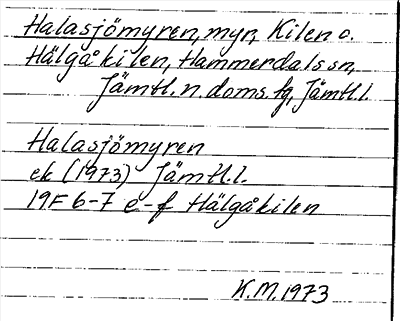 Halasjömyren, myr, Kilen o.
Hälgåkilen, Hammerdals sn,
Jämtl. n. doms. fg, Jämtl. l.
Halasjömyren
ek (1973) Jämtl. l.
19F 6-7 e-f Hälgåkilen
K.M. 1973